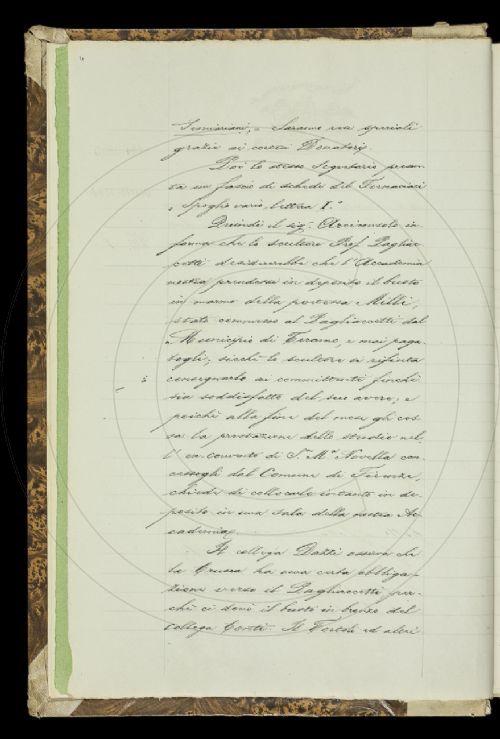 grazie ai cortesi Donatori.
Poi lo stesso Segretario presen-
ta un fascio di schede del Fornaciari
Spoglio vario, lettera I.
Quindi il sig. Arciconsolo in-
forma che lo scultore Prof. Pagliac-
cetti desidererebbe che l'Accademia
nostra prendesse in deposito il busto
in marmo della poetessa Milli,
stato commesso al Pagliaccetti dal
Municipio di Teramo, e mai paga-
togli; sicchè lo scultore si rifiuta
consegnarlo ai committenti finchè
sia soddisfatto del suo avere; e
poichè alla fine del mese gli ces-
sa la prestazione dello studio nel-
l'ex convento di S.ª M.ª Novella con-
cessogli dal Comune di Firenze,
chiede di collocarlo intanto in de-
posito in una sala della nostra Ac-
cademia.
Il collega Dazzi osserva che
la Crusca ha una certa obbliga-
zione verso il Pagliaccetti per-
chè ci donò il busto in bronzo del
collega Conti. Il Tortoli ed altri